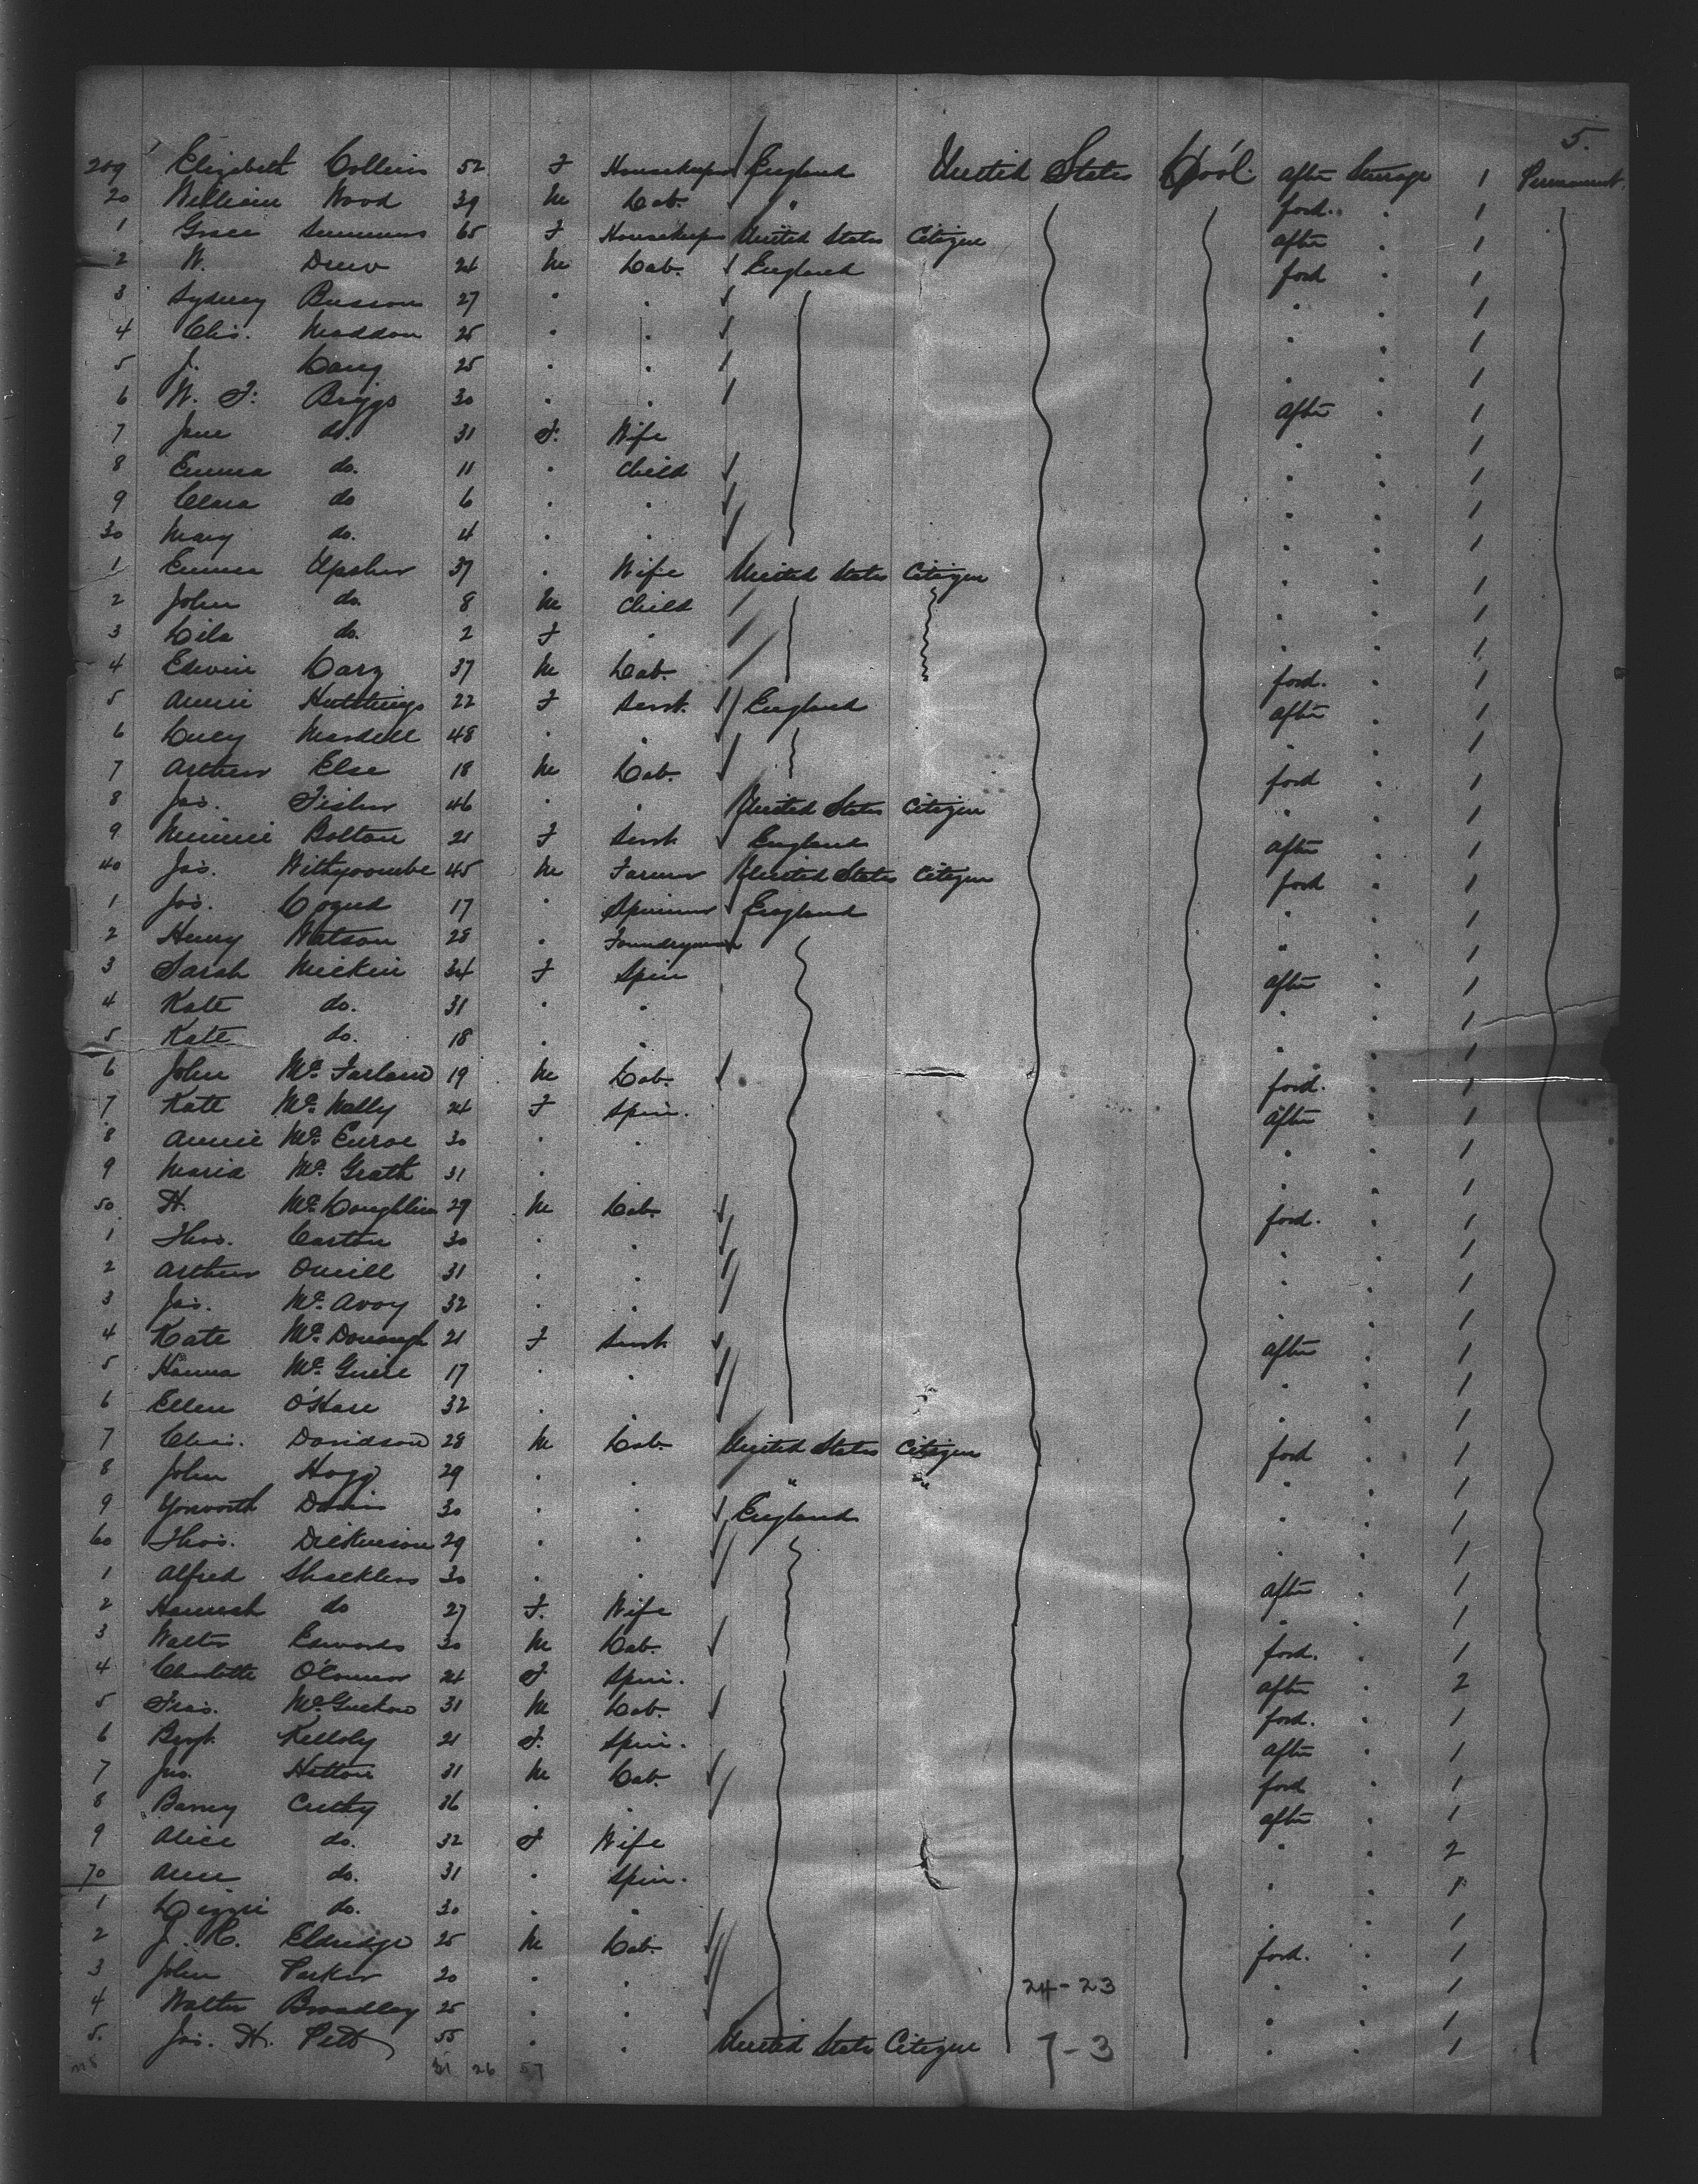 5.
219 Elizabeth Collins 52 F Housekeeper England United States L'pól. after Steerage 1 Permanent.
20 William Wood 39 M Lab. " ford. . 1
1 Grace Simmons 65 F Housekeeper United States Citizen after . 1
2 W. Drew 24 M Lab. England ford . 1
3 Sydney 27 . . . . 1
4 Chs. Maddon 25 . . . . 1
5 J. 25 . . . . 1
6 W. F. Briggs 30 . . after . 1
7 Jane do. 31 F. Wife . . 1
8 Emma do. 11 . Child . . 1
9 Clara do 6 . . . . 1
30 Mary do. 4 . . . . 1
1 Emma Upsher 37 . Wife United States Citizen . . 1
2 John do. 8 M Child . . 1
3 Lila do. 2 F . . . 1
4 Edwin 37 M Lab. ford. . 1
5 Annie Hutchings 22 F Servt. England after . 1
6 Lucy Mardell 48 . . . . 1
7 Arthur Else 18 M Lab. ford . 1
8 Jas. Fisher 46 . . United States Citizen . . 1
9 Minnie Bolton 21 F Servt England after . 1
40 Jas. Withycombe 45 M Farmer United States Citizen ford . 1
1 Jas. 17 . Spinner England . . 1
2 Henry Watson 28 . Foundryman " . 1
3 Sarah Mickin 34 F Spin after . 1
4 Kate do. 31 . . . . 1
5 Kate do. 18 . . . . 1
6 John McFarland 19 M Lab. ford. . 1
7 Kate McNally 24 F Spin. after . 1
8 Annie McEnroe 30 . . . . 1
9 Maria McGrath 31 . . . 1
50 H. McLoughlin 29 M Lab. ford. . 1
1 Thos. Carton 30 . . . . 1
2 Arthur Oneill 31 . . . . 1
3 Jas. McAvoy 32 . . . . 1
4 Kate McDonough 21 F Servt. after . 1
5 Hanna McGuire 17 . . . . 1
6 Ellen O'Hare 32 . . . . 1
7 Chas. Davidson 28 M Lab. United States Citizen ford . 1
8 John Hogg 29 . . " " . . 1
9 Yorworth Davies 30 . . England . . 1
60 Thos. Dickinson 29 . . . . 1
1 Alfred Shackless 30 . . after . 1
2 Hannah do 27 F. Wife . . 1
3 Walter Edwards 30 M Lab. ford. . 1
4 Charlotte O'Connor 24 F Spin. after . 2
5 Fras. McGuckow 31 M Lab. ford. . 1
6 Bridgt. 21 F. Spin. after . 1
7 Jno. Hatton 31 M Lab. ford . 1
8 Barney 36 . . after . 1
9 Alice do. 32 F Wife . . 2
70 Anne do. 31 . Spin. . . 1
1 Lizzie do. 30 . . . . 1
2 J. H. Eldridge 25 M Lab. ford. . 1
3 John Parker 20 . . 24-23 . . 1
4 Walter Broadley 25 . . . . 1
5. Jas. H. Pett 55 . . United States Citizen 7-3 . . 1
31 26 57